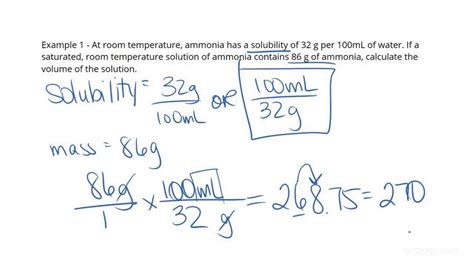 Example 1 - At room temperature, ammonia has a solubility of 32 g per 100mL of water. If a
saturated, room temperature solution of ammonia contains 86 g of ammonia, calculate the
volume of the solution.
Solubility = 32g / 100mL OR 100mL / 32g
mass = 86g
86g / 1 × 100mL / 32 g = 268.75 = 270